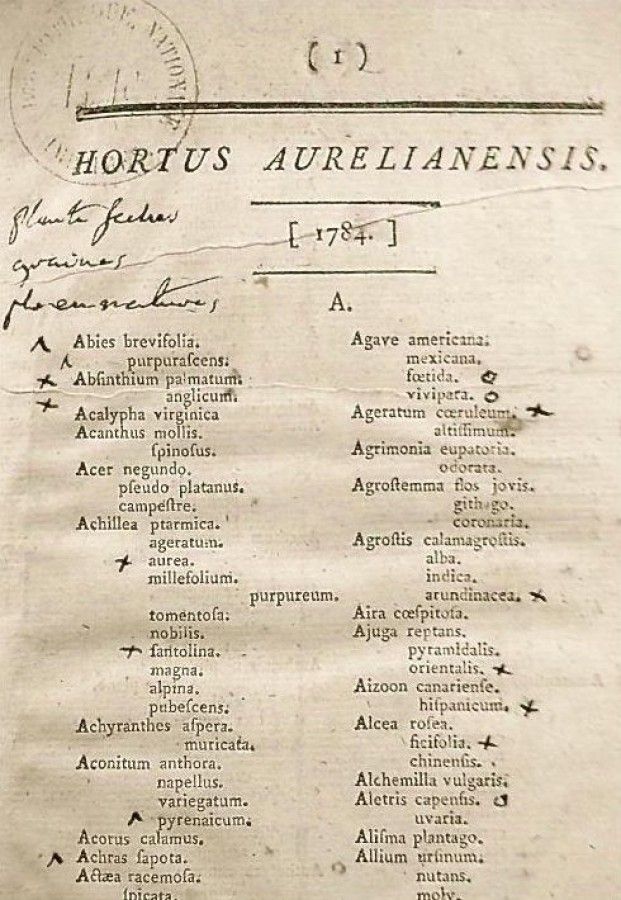 ( 1 )
HORTUS AURELIANENSIS.
[ 1784. ]
plante
graines
A.
Abies brevifolia.
purpuraſcens.
Abſinthium palmatum.
anglicum.
Acalypha virginica
Acanthus mollis.
ſpinoſus.
Acer negundo.
pſeudo platanus.
campeſtre.
Achillea ptarmica.
ageratum.
aurea.
millefolium.
purpureum.
tomentoſa.
nobilis.
ſantolina.
magna.
alpina.
pubeſcens.
Achyranthes aſpera.
muricata.
Aconitum anthora.
napellus.
variegatum.
pyrenaicum.
Acorus calamus.
Achras ſapota.
Actæa racemoſa.
ſpicata.
Agave americana.
mexicana.
fœtida.
vivipara.
Ageratum cœruleum.
altiſſimum.
Agrimonia eupatoria.
odorata.
Agroſtemma flos jovis.
githago.
coronaria.
Agroſtis calamagroſtis.
alba.
indica.
arundinacea.
Aira cœſpitoſa.
Ajuga reptans.
pyramidalis.
orientalis.
Aizoon canarienſe.
hiſpanicum.
Alcea roſea.
ficifolia.
chinenſis.
Alchemilla vulgaris.
Aletris capenſis.
uvaria.
Aliſma plantago.
Allium urſinum.
nutans.
moly.